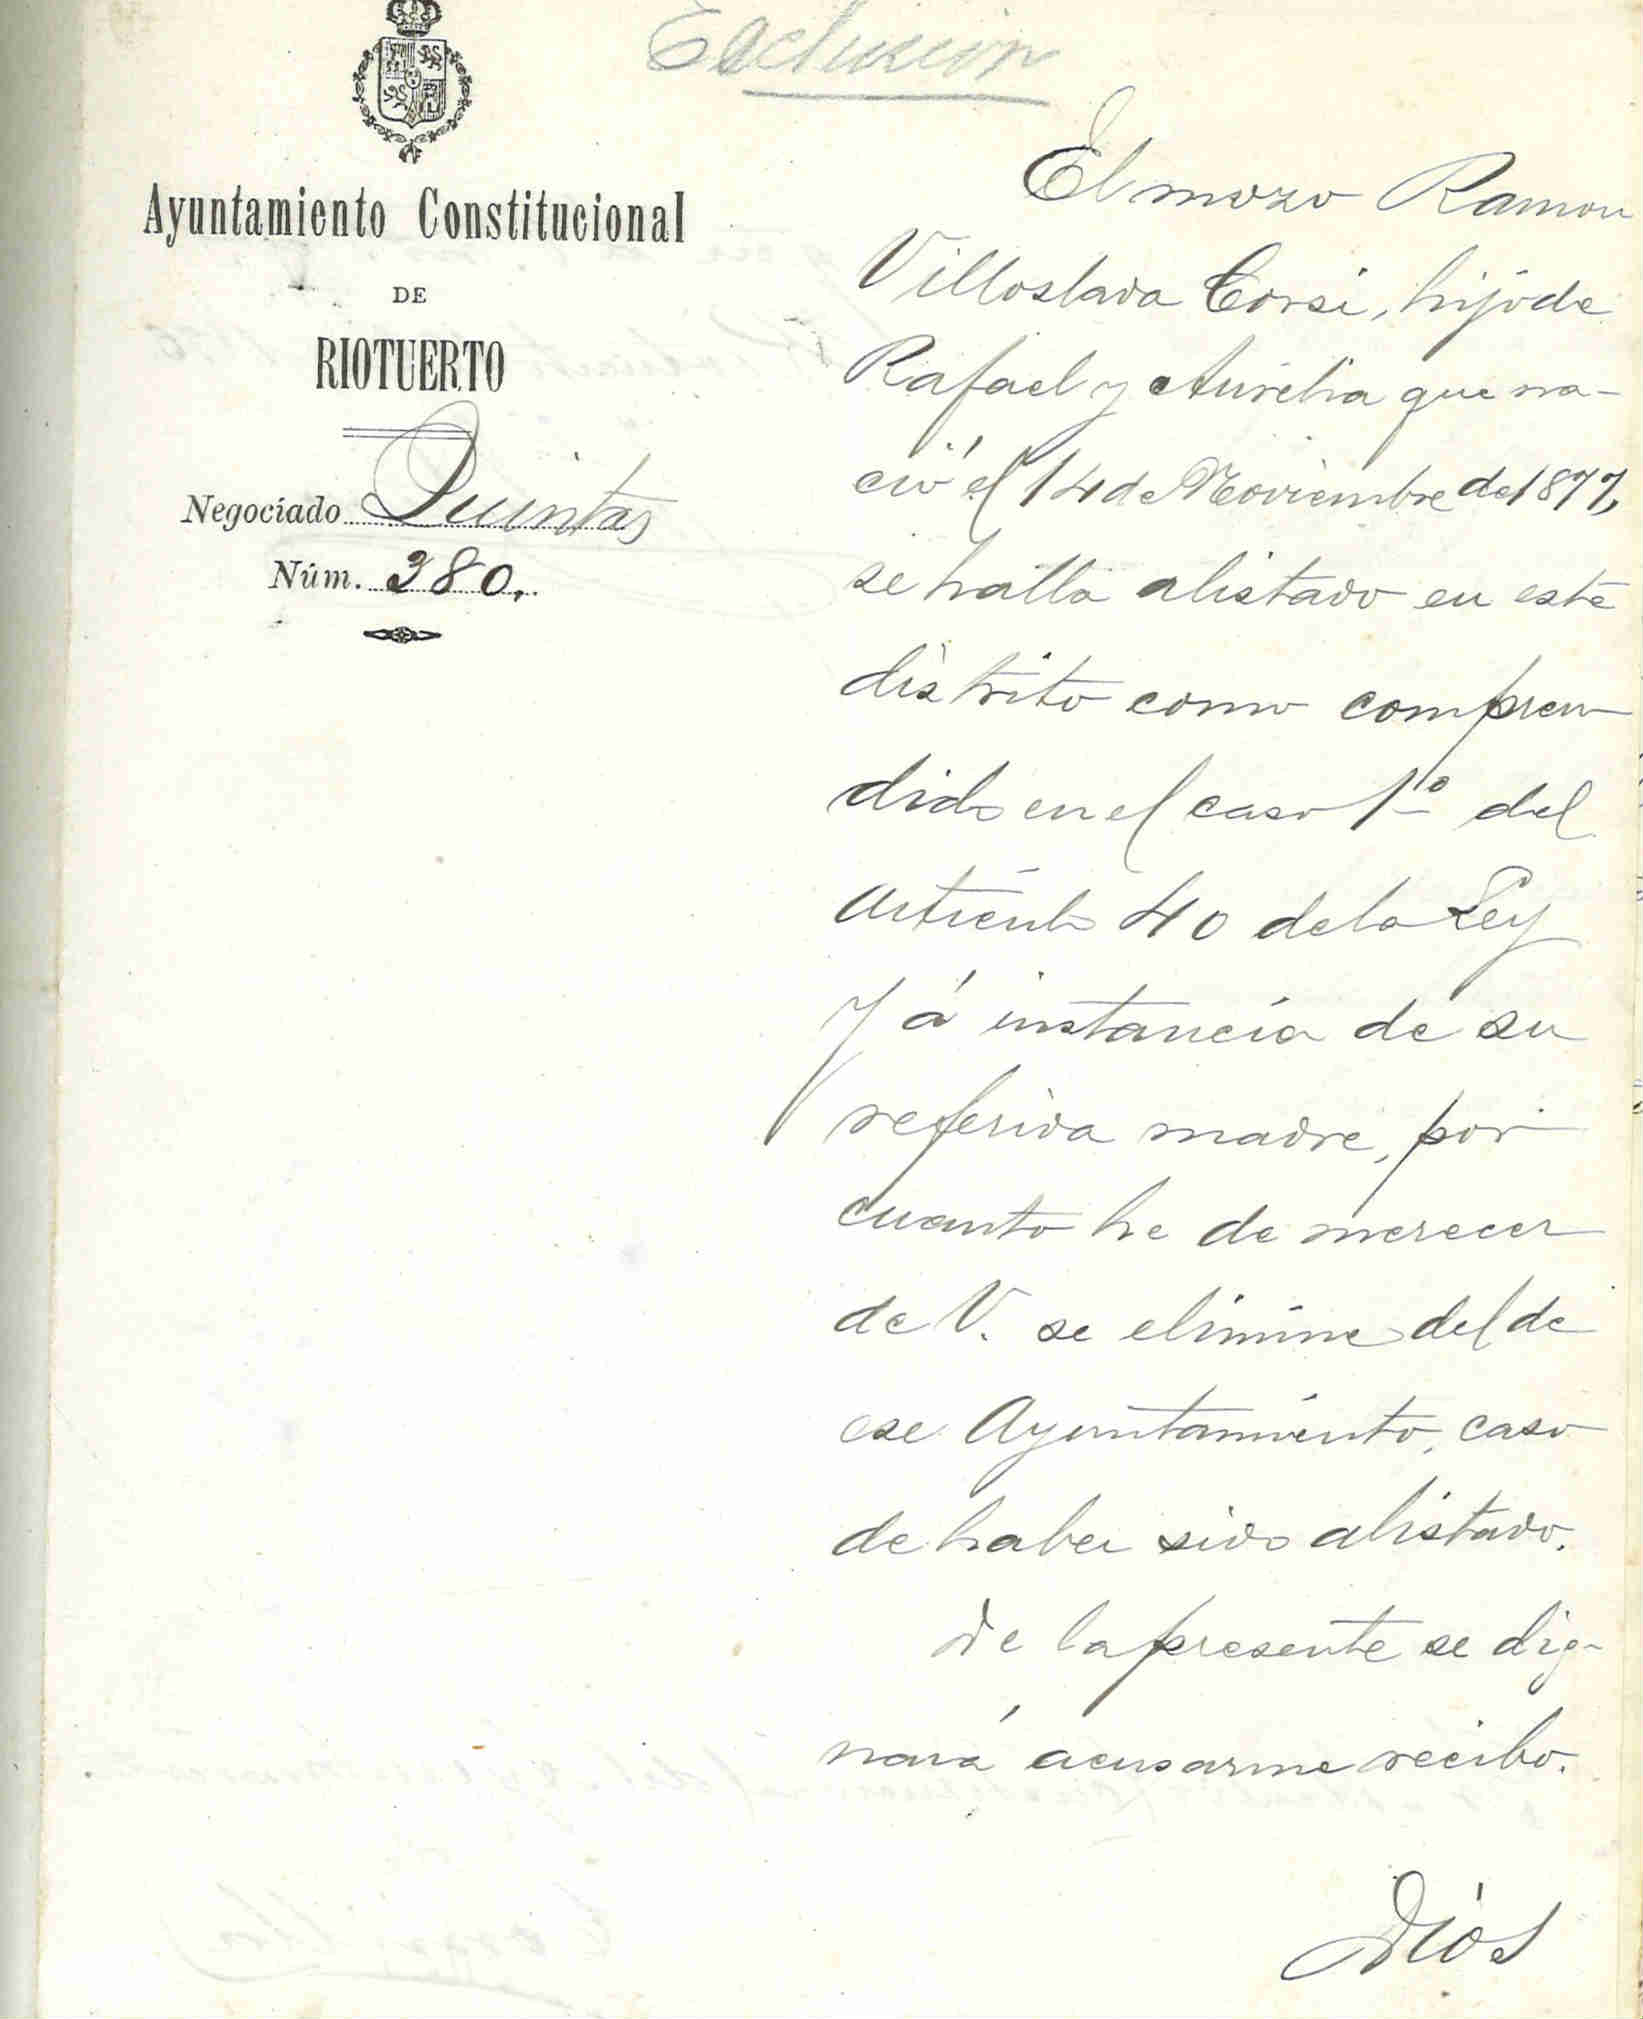 Exclusion
Ayuntamiento Constitucional
DE
RIOTUERTO
Negociado Quintas
Núm. 280.
El mozo Ramon
Villoslada Corsi, hijo de
Rafael y Aurelia que na-
ció el 14 de Noviembre de 1877,
se halla alistado en este
distrito como compren
dido en el caso 1º del
artículo 40 de la Ley
y á instancia de su
referida madre, por
cuanto he de merecer
de V. se elimine del de
ese Ayuntamiento, caso
de haber sido alistado.
De la presente se dig-
nará acusarme recibo.
Dios